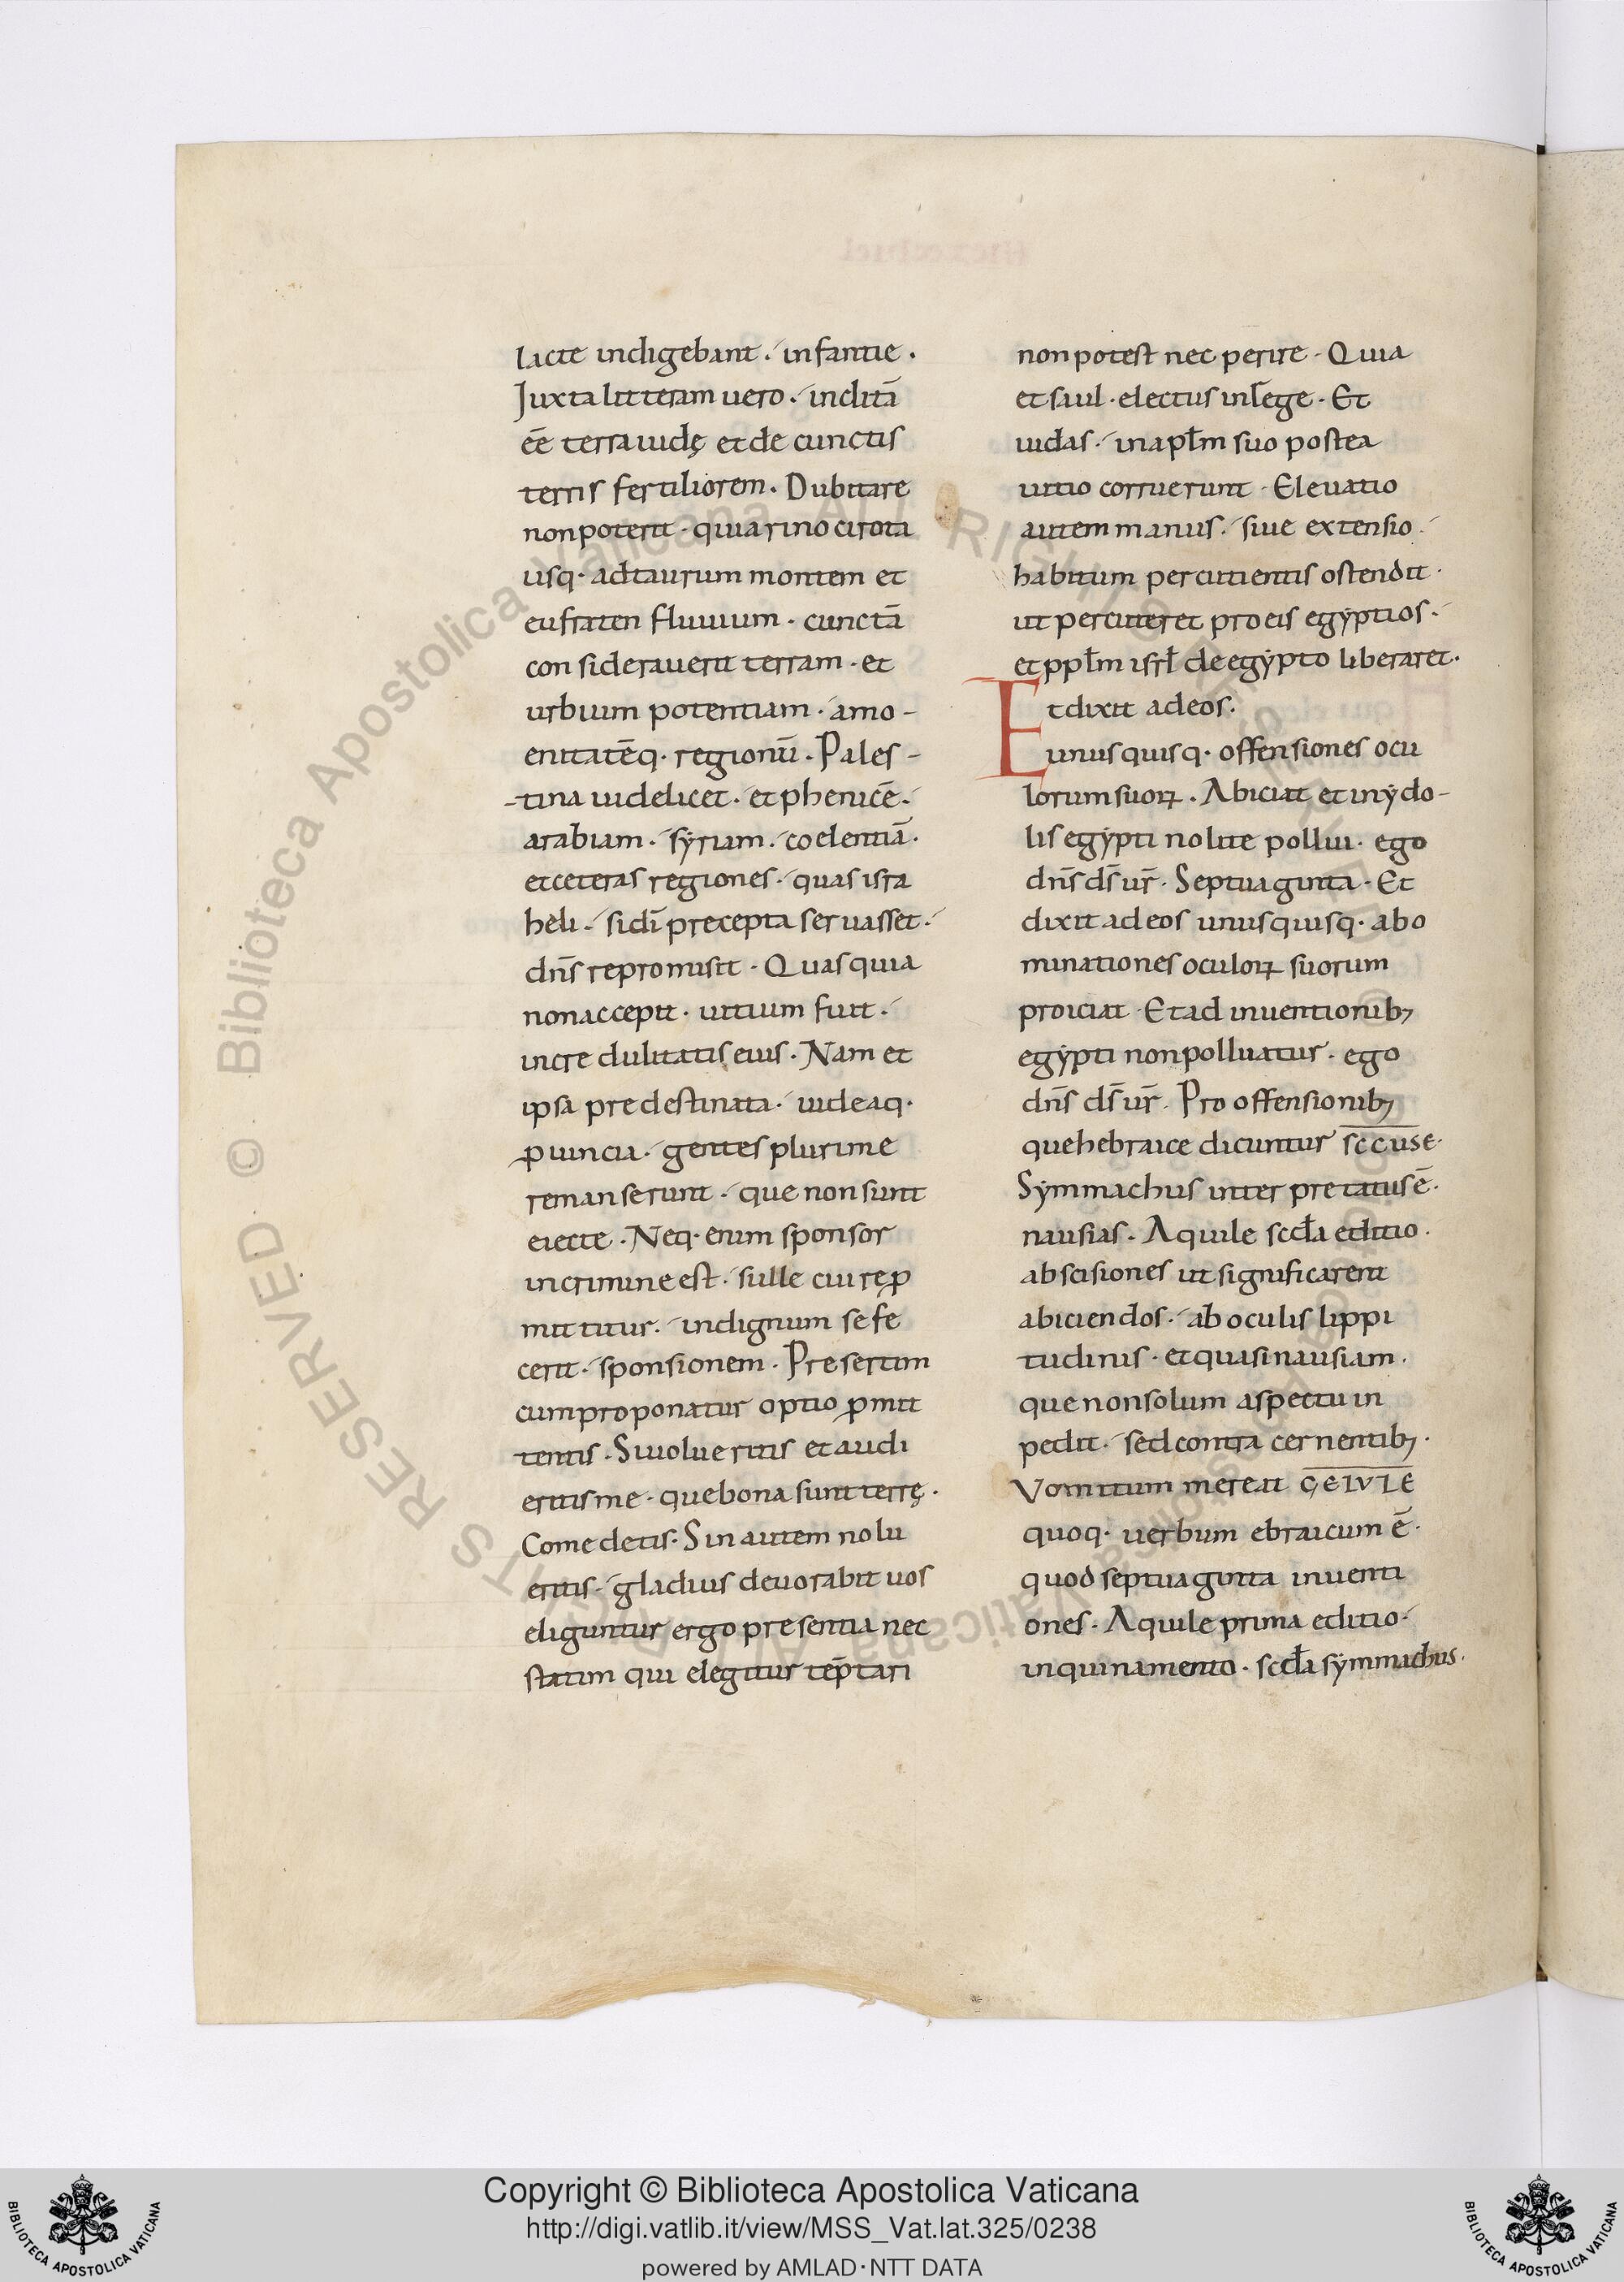 lacte indigebant · infantie ·
Juxta litteram uero · inclitā
eē terra iudę et de cunctis
terris fertiliorem · Dubitare
non poterit · qui a rinocirota
usq· ad taurum montem et
eufraten fluuium · cunctā
considerauerit terram · et
urbium potentiam · amo-
enitatēq· regionū · Pales-
-tina uidelicet · et phenicē ·
arabiam · sẏriam · coelentiā ·
et ceteras regiones · quas isra
heli · si dī precepta seruasset ·
dn̄s repromisit · Quas quia
non accepit · uitium fuit ·
incredulitatis eius · Nam et
ipsa predestinata · iudeaq·
ꝓuincia · gentes plurime
remanserunt · que non sunt
eiecte · Neq· enim sponsor
in crimine est · si ille cui reꝓ
mittitur · indignum se fe
cerit · sponsionem · Presertim
cum proponatur optio ꝓmit
tentis · Si uolueritis et audi
eritis me · que bona sunt terrę ·
Comedetis · Sin autem nolu
eritis · gladius deuorabit uos
eliguntur ergo presentia nec
statim qui elegitur tēptari
non potest nec perire · Quia
et saul · electus in r̄ege · Et
iudas · in apłm suo postea
uitio corruerunt · Eleuatio
autem manus · siue extensio ·
habitum percutientis ostendit ·
ut percuteret pro eis egẏptios ·
et ppłm isrł de egẏpto liberaret ·
Et dixit ad eos ·
unusquisq· offensiones ocu
lorum suoꝝ · Abiciat et in ẏdo-
lis egẏpti nolite pollui · ego
dn̄s ds̄ ur̄ · Septuaginta · Et
dixit ad eos unusquisq· abo
minationes oculoꝝ suorum
proiciat · Et ad inuentionibꝫ
egẏpti non polluatur · ego
dn̄s ds̄ ur̄ · Pro offensionibꝫ
que hebraice dicuntur s̄c̄c̄ūs̄ē ·
Sẏmmachus interpretatus ē ·
nausias · Aquile scďa editio ·
abscisiones ut significarent
abiciendos · ab oculis lippi
tudinis · et quasi nausiam ·
que non solum aspectu in
pedit · sed contra cernentibꝫ ·
Vomitum mereat ḡēl̄v̄l̄ē
quoq· uerbum ebraicum ē ·
quod septuaginta inuenti
ones · Aquile prima editio ·
inquinamento · scďa sẏmmachus ·
Copyright © Biblioteca Apostolica Vaticana
http://digi.vatlib.it/view/MSS_Vat.lat.325/0238
powered by AMLAD·NTT DATA